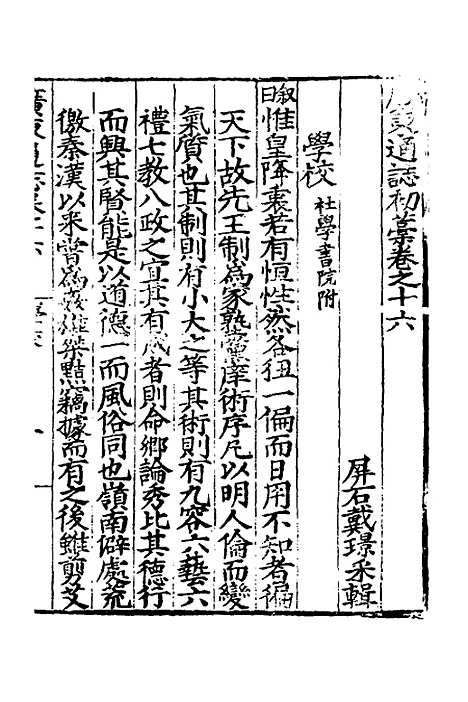 廣東通誌初藁卷之十六
屏石戴璟釆輯
學校 社學書院附
叙曰惟皇降衷若有恒性然各狃一偏而日用不知者徧
天下故先王制為家塾黨庠術序凡以明人倫而變
氣質也其制則有小大之等其術則有九容六藝六
禮七教八政之宜其有成者則命鄉論秀比其德行
而興其賢能是以道德一而風俗同也嶺南僻處荒
徼秦漢以来嘗為姦雄桀黠竊據而有之後雖剪芟
廣東通誌卷十六